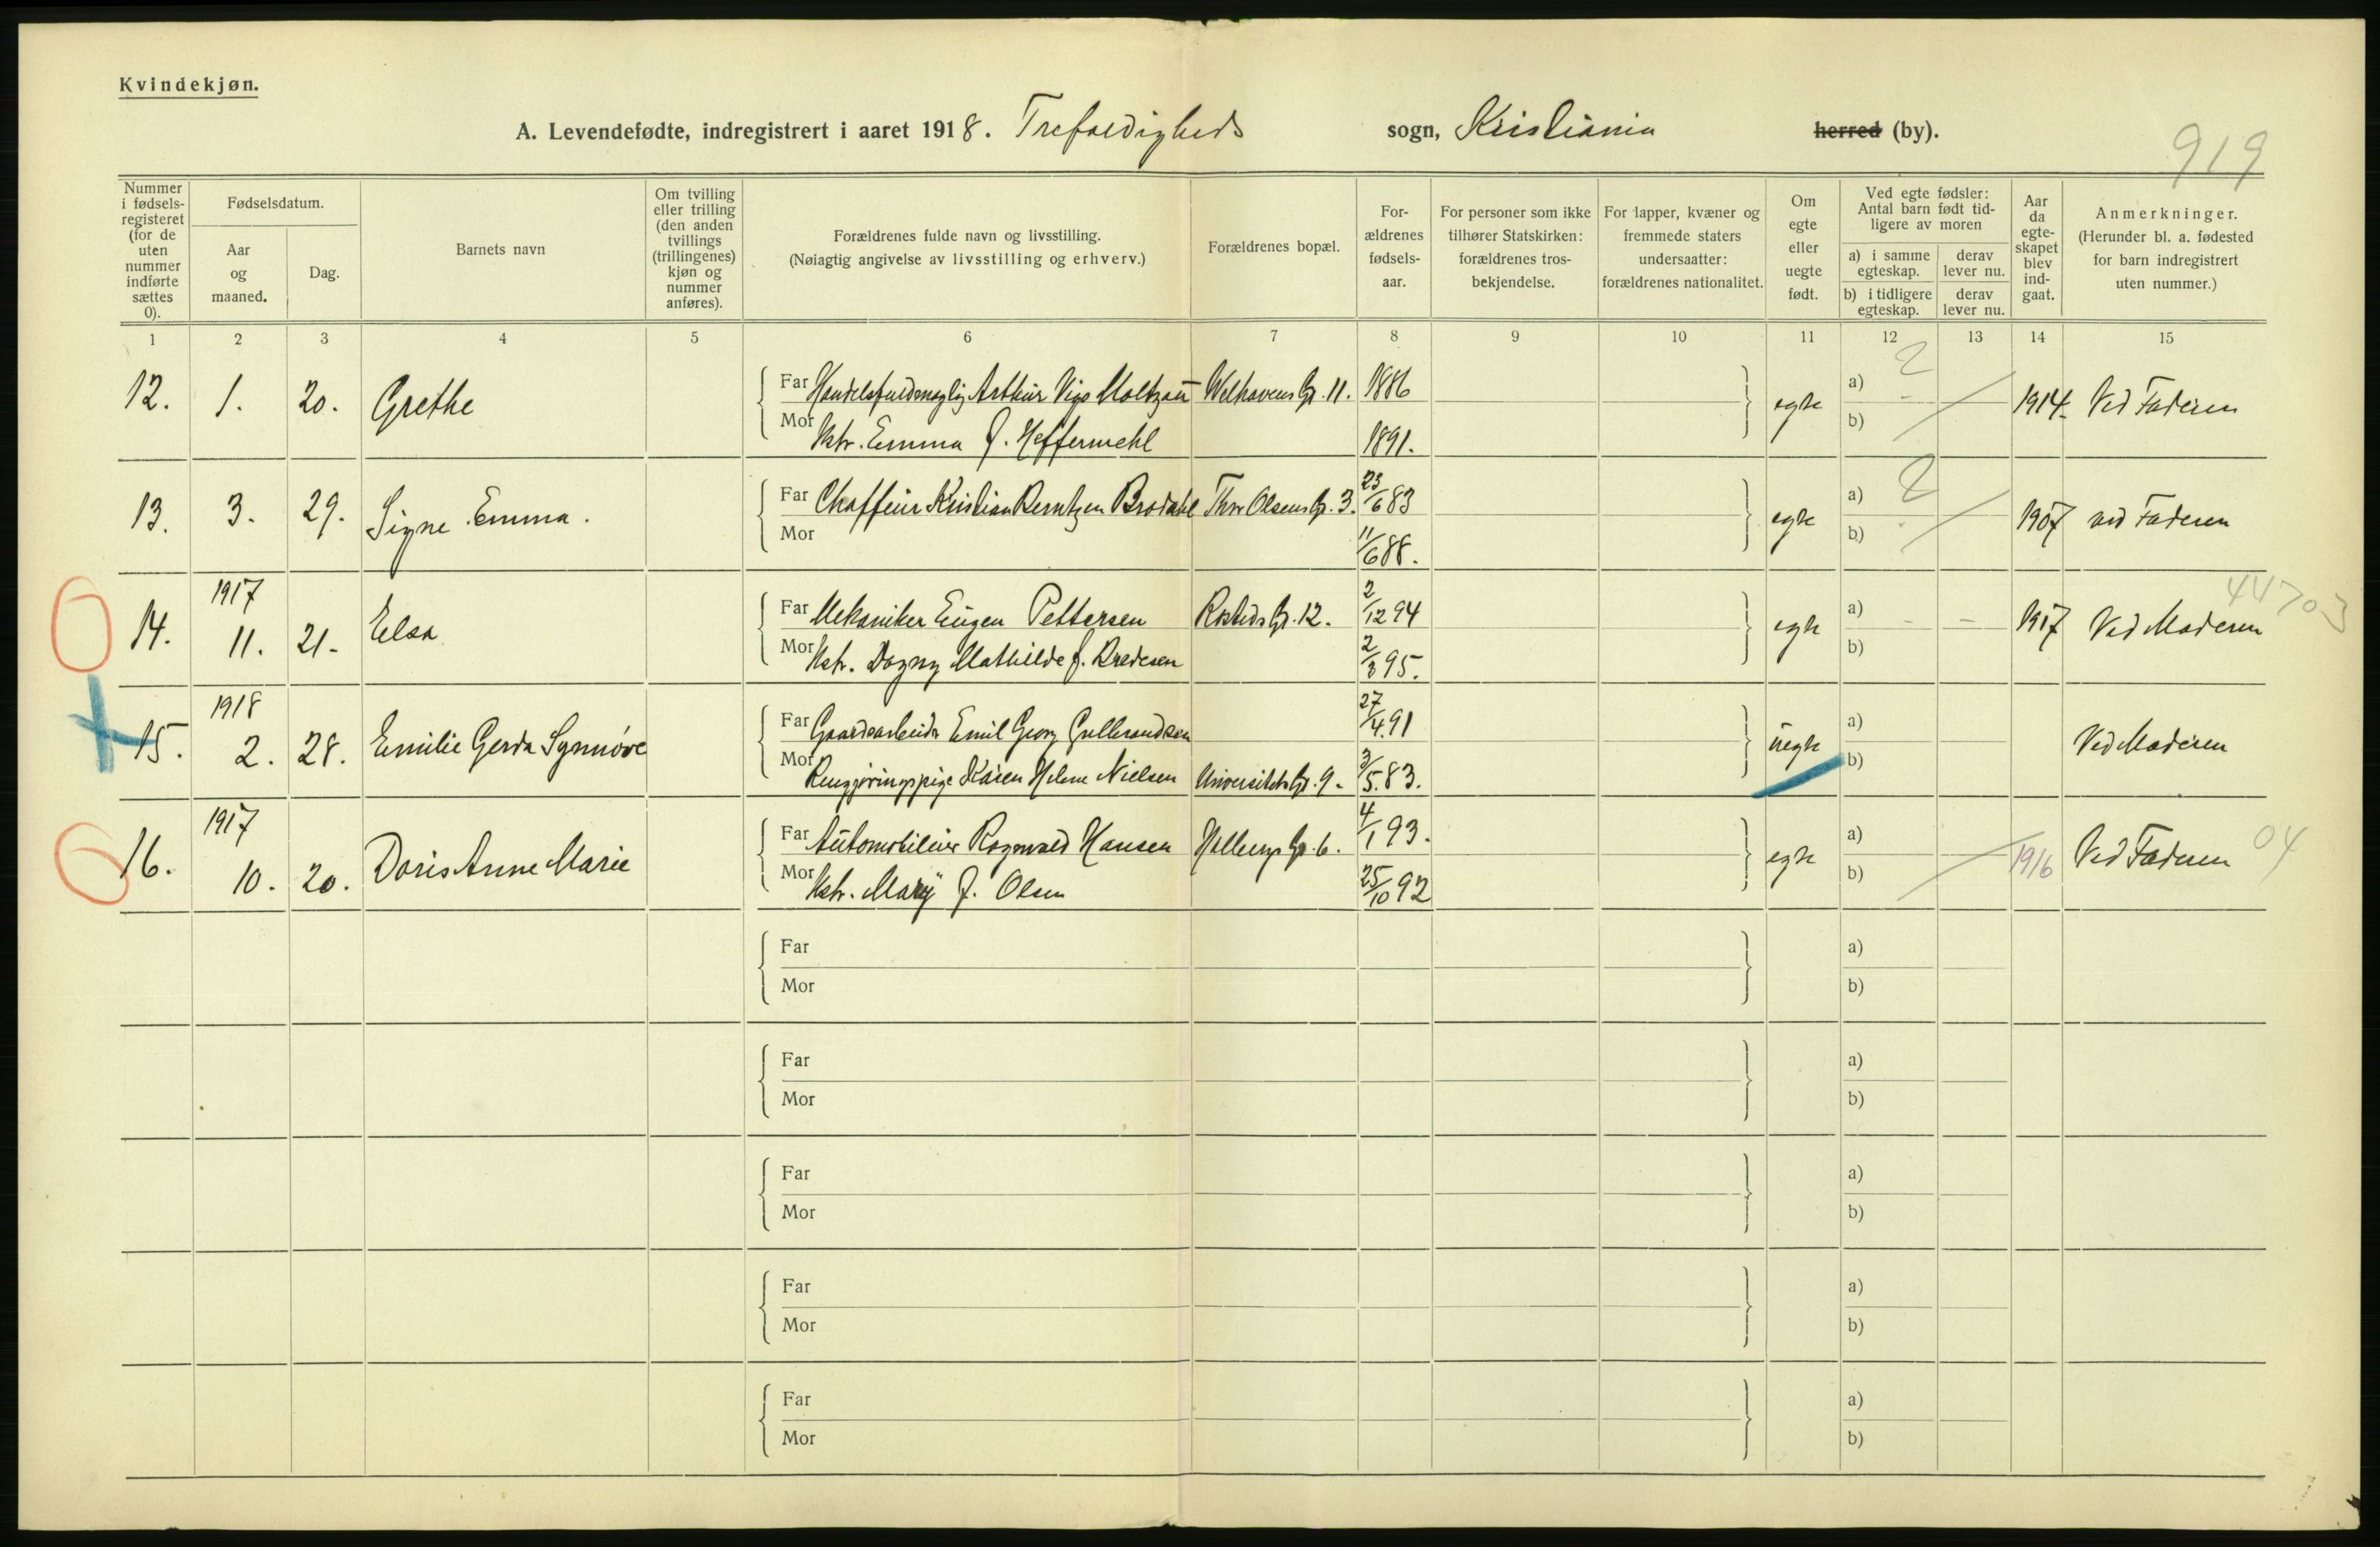 Kvindekjøn.
A. Levendefødte, indregistrert i aaret 1918. Trefoldigheds sogn, Kristiania herred (by).
919
Nummer i fødsels-registeret (for de uten nummer indførte sættes 0).
Fødselsdatum.
Aar og maaned.
Dag.
Barnets navn
Om tvilling eller trilling (den anden tvillings (trillingenes) kjøn og nummer anføres).
Forældrenes fulde navn og livsstilling.
(Nøiagtig angivelse av livsstilling og erhverv.)
Forældrenes bopæl.
For-ældrenes fødsels-aar.
For personer som ikke tilhører Statskirken: forældrenes tros-bekjendelse.
For lapper, kvæner og fremmede staters undersaatter: forældrenes nationalitet.
Om egte eller uegte født.
Ved egte fødsler: Antal barn født tid-ligere av moren
a) i samme egteskap.
derav lever nu.
b) i tidligere egteskap.
derav lever nu.
Aar da egte-skapet blev ind-gaat.
Anmerkninger.
(Herunder bl. a. fødested for barn indregistrert uten nummer.)
1 2 3 4 5 6 7 8 9 10 11 12 13 14 15
12. 1. 20. Grethe Far Handelsfuldmægtig Arthur Vigo Moltzau Welhavens Gt. 11. 1886 egte a) 2 1914 Ved Faderen
Mor Hstr. Emma f. Heffermehl 1891. b)
13. 3. 29. Signe Emma. Far Chaffeur Kristian Berntzen Brodahl Thor Olsens Gt. 3. 23/6 83 egte a) 2 1907 ved Faderen
Mor 11/6 88. b)
1917
14. 11. 21. Elsa Far Mekaniker Eugen Pettersen Rosteds Gt. 12. 2/12 94 egte a) - - 1917 Ved Moderen 44703
Mor Hstr. Dagny Mathilde f. Bredesen 2/3 95. b)
1918
15. 2. 28. Emilie Gerda Synnøve Far Gaardsarbeider Emil Georg Gulbrandsen 27/4 91 uegte a) Ved Moderen
Mor Rengjøringspige Karen Helene Nielsen Universitets Gt. 9. 3/5 83. b)
1917
16. 10. 20. Doris Anne Marie Far Automobileier Ragnvald Hansen 4/1 93. egte a) 1916 Ved Faderen 04
Mor Hstr. Mary f. Olsen 25/10 92 b)
Far a)
Mor b)
Far a)
Mor b)
Far a)
Mor b)
Far a)
Mor b)
Far a)
Mor b)